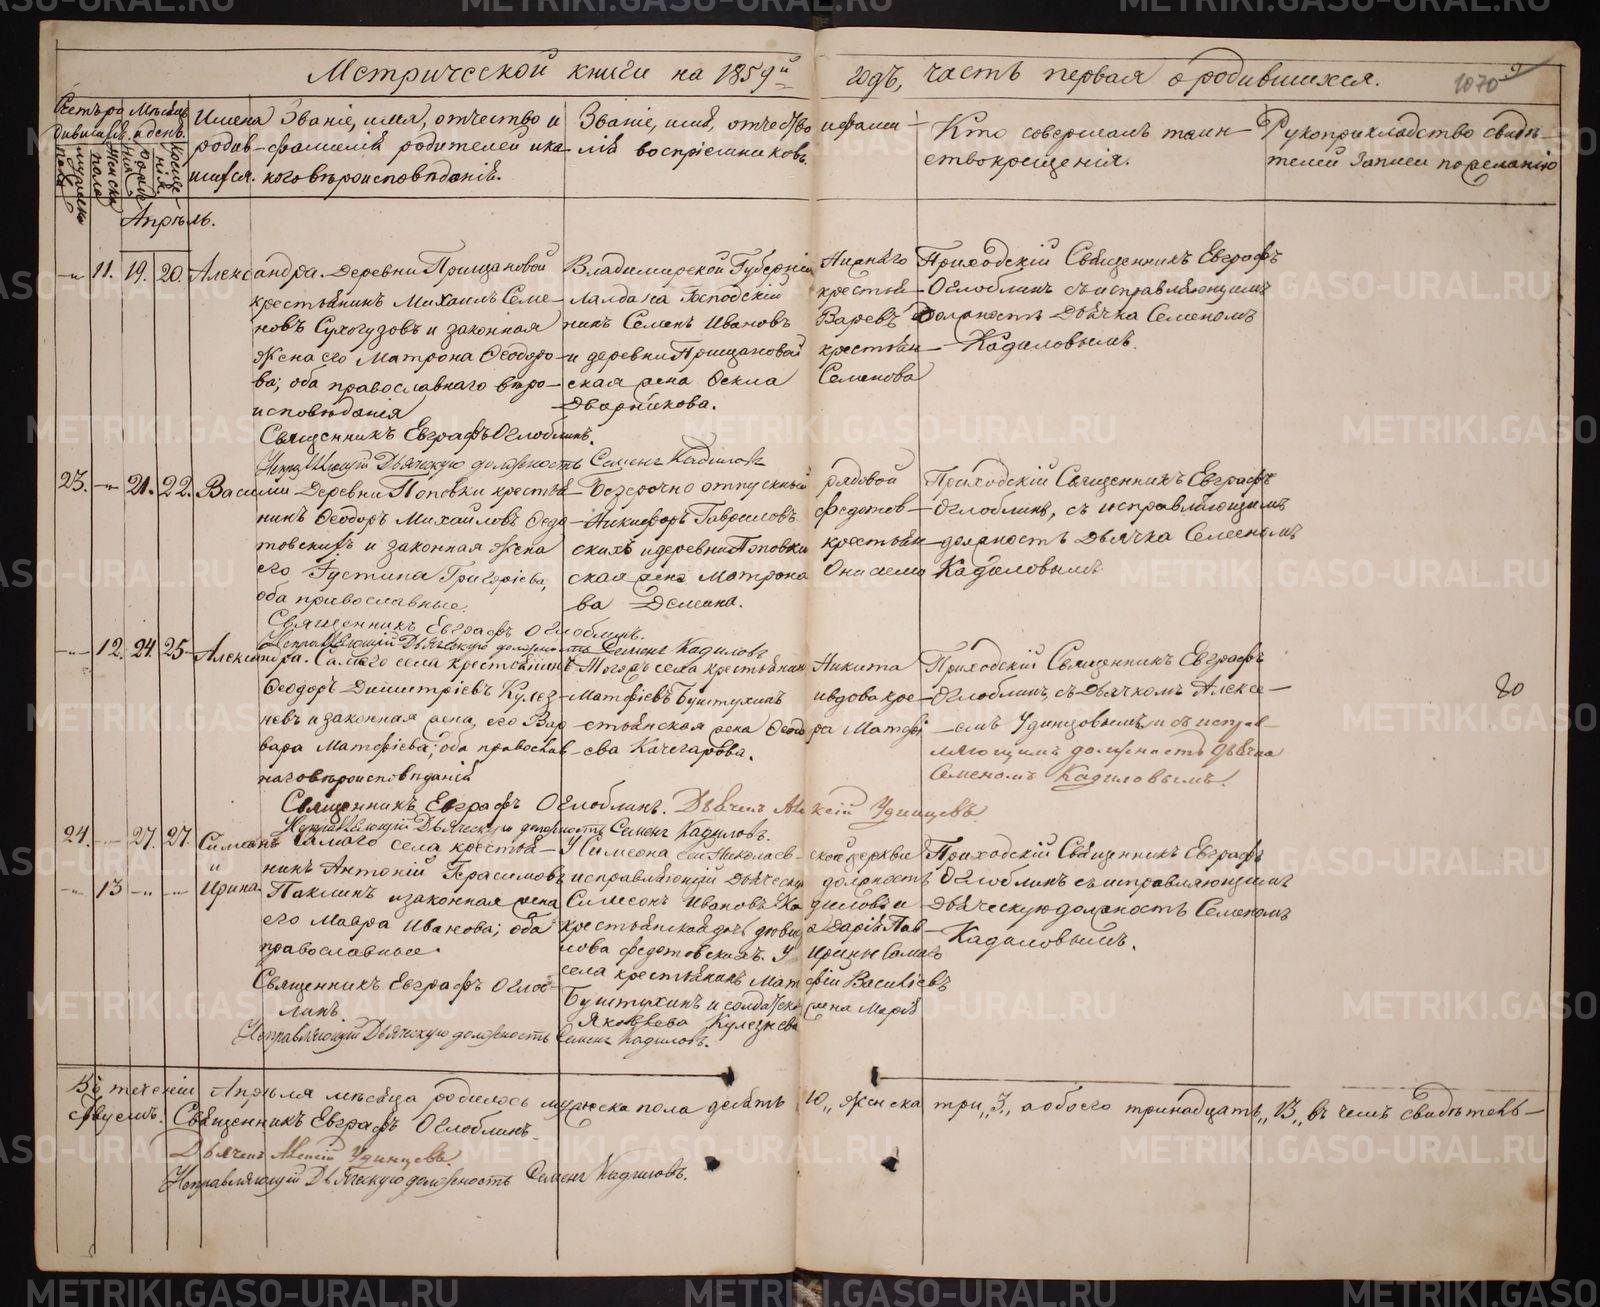 Метрической книги на 1859й годъ, часть первая о родившихся.
1070
Счетъ родившихся. Мѣсяцъ и день.
мужеска пола
женска пола
рожденія
крещенія
Имена родившихся.
Званіе, имя, отчество и фамилія родителей и какого вѣроисповѣданія.
Званіе, имя, отчество и фамилія воспріемниковъ.
Кто совершалъ таинство крещенія.
Рукоприкладство свидѣтелей записи по желанію
Апрѣль.
11. 19. 20. Александра.
Деревни Прищановой
крестьянинъ Михаилъ Семеновъ
Сухогузовъ и законная
жена его Матрона Ѳеодорова;
оба православнаго вѣроисповѣданія
Владимирской Губерніи
Господскій крестьянинъ
Семенъ Ивановъ
и деревни Прищановой
крестьянская жена
Семенова
Дворникова.
Приходскій Священникъ Евграфъ
Оглоблинъ съ исправляющимъ
должность Дьячка Семеномъ
Кадиловымъ.
Священникъ Евграфъ Оглоблинъ.
Исправляющій Дьяческую должность Семенъ Кадиловъ
23. 21. 22. Василий
Деревни Поповки крестьянинъ
Ѳеодоръ Михайловъ Федотовскихъ
и законная жена
его Устина Григорьева,
оба православные.
Безсрочно отпускный рядовой
Никифоръ Гавриловъ Федотовскихъ
и деревни Поповки крестьянская
жена Матрона
Демина.
Приходскій Священникъ Евграфъ
Оглоблинъ, съ исправляющимъ
должность Дьячка Семеномъ
Кадиловымъ
Священникъ Евграфъ Оглоблинъ.
Исправляющій Дьяческую должность Семенъ Кадиловъ
12. 24. 25. Александра.
Самаго села крестьянинъ
Ѳеодоръ Димитріевъ Кулезневъ
и законная жена его Варвара
Матфіева; оба православнаго
вѣроисповѣданія
Тогожъ села крестьянинъ Никита
Матфіевъ Буштухинъ
и вдова крестьянская жена Ѳеодора
Матфіева Качегарова.
Приходскій Священникъ Евграфъ
Оглоблинъ, съ Дьячкомъ Алексеемъ
Удинцовымъ и съ исправляющимъ
должность Дьячка
Семеномъ Кадиловымъ.
80
Священникъ Евграфъ Оглоблинъ. Дьячекъ Алексій Удинцевъ
Исправляющій Дьяческую должность Семенъ Кадиловъ.
24. 27. 27. Симеонъ
и
13 Ирина.
Самаго села крестьянинъ
Антоній Герасимовъ
Паклинъ и законная жена
его Мавра Иванова; оба
православные.
У Симеона сей Николаевской церкви
исправляющій Дьяческую должность
Симеонъ Ивановъ Кадиловъ и
крестьянская дочь девица Дарія Павлова
Федотовскихъ. У Ирины Самаго
села крестьянинъ Матфій Василіевъ
Буштухинъ и солдатская жена Марія
Яковлева Кулезнева
Приходскій Священникъ Евграфъ
Оглоблинъ съ исправляющимъ
Дьяческую должность Семеномъ
Кадиловымъ.
Священникъ Евграфъ Оглоблинъ.
Исправляющій Дьяческую должность Семенъ Кадиловъ.
Въ теченіи Апрѣля мѣсяца родилось мужеска пола десять 10,, женска три,, 3,, а обоего тринадцать,, 13,, въ чемъ свидѣтельствуемъ:
Священникъ Евграфъ Оглоблинъ
Дьячекъ Алексій Удинцевъ.
Исправляющій Дьяческую должность Семенъ Кадиловъ.
METRIKI.GASO-URAL.RU